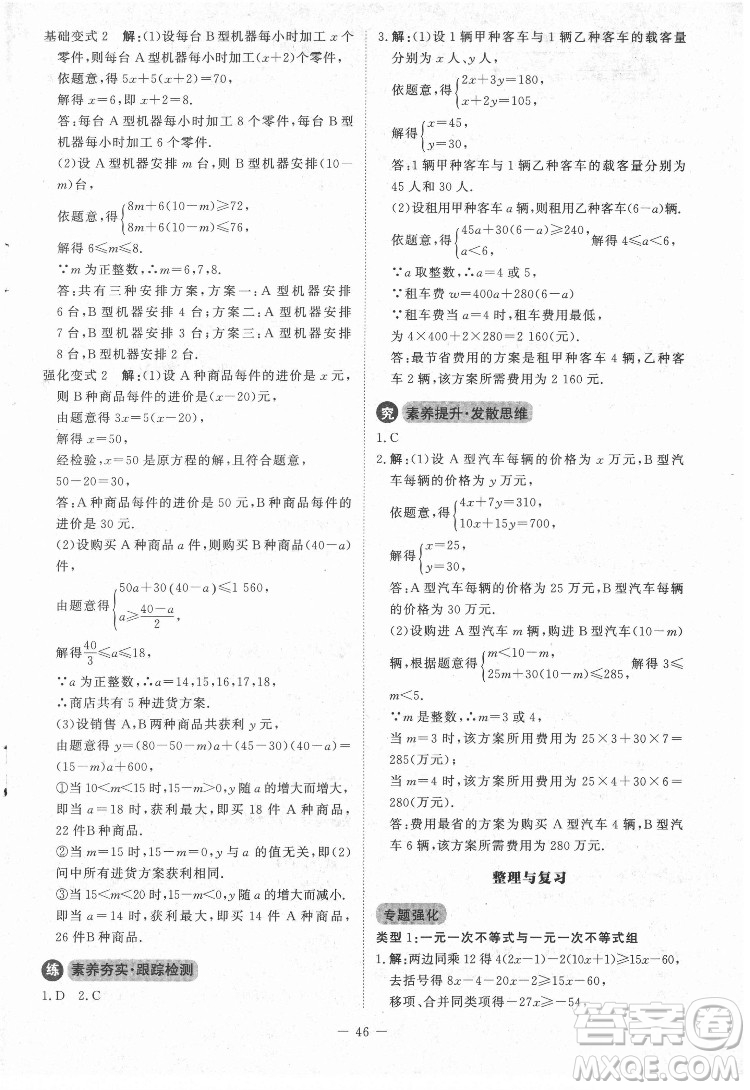 基础变式2 解:(1)设每台B型机器每小时加工x个
零件,则每台A型机器每小时加工(x+2)个零件,
依题意,得5x+5(x+2)=70,
解得x=6,即x+2=8.
答:每台A型机器每小时加工8个零件,每台B型
机器每小时加工6个零件.
(2)设A型机器安排m台,则B型机器安排(10-
m)台,
依题意,得{8m+6(10-m)≥72,
8m+6(10-m)≤76,
解得6≤m≤8.
∵m为正整数,∴m=6,7,8.
答:共有三种安排方案,方案一:A型机器安排
6台,B型机器安排4台;方案二:A型机器安排
7台,B型机器安排3台;方案三:A型机器安排
8台,B型机器安排2台.
强化变式2 解:(1)设A种商品每件的进价是x元,
则B种商品每件的进价是(x-20)元,
由题意得3x=5(x-20),
解得x=50,
经检验,x=50是原方程的解,且符合题意,
50-20=30.
答:A种商品每件的进价是50元,B种商品每件的
进价是30元.
(2)设购买A种商品a件,则购买B商品(40-a)
件,
由题意得{50a+30(40-a)≤1 560,
a≥(40-a)/2,
解得40/3≤a≤18,
∵a为正整数,∴a=14,15,16,17,18,
∴商店共有5种进货方案.
(3)设销售A,B两种商品共获利y元,
由题意得y=(80-50-m)a+(45-30)(40-a)=
(15-m)a+600,
①当10<m<15时,15-m>0,y随a的增大而增大,
即当a=18时,获利最大,即买18件A种商品,
22件B种商品.
②当m=15时,15-m=0,y与a的值无关,即(2)
问中所有进货方案获利相同.
③当15<m<20时,15-m<0,y随a的增大而减小.
即当a=14时,获利最大,即买14件A种商品,
26件B种商品.
练 素养夯实·跟踪检测
1.D 2.C
3.解:(1)设1辆甲种客车与1辆乙种客车的载客量
分别为x人、y人.
依题意,得{2x+3y=180,
x+2y=105,
解得{x=45,
y=30.
答:1辆甲种客车与1辆乙种客车的载客量分别为
45人和30人.
(2)设租用甲种客车a辆,则租用乙种客车(6-a)辆.
依题意,得{45a+30(6-a)≥240,
a<6, 解得4≤a<6.
∵a取整数,∴a=4或5,
∵租车费w=400a+280(6-a)
∴租车费当a=4时,租车费用最低,
为4×400+2×280=2 160(元).
答:最节省费用的方案是租甲种客车4辆,乙种客
车2辆,该方案的费用为2 160元.
究 素养提升·发散思维
1.C
2.解:(1)设A型汽车每辆的价格为x万元,B型汽
车每辆的价格为y万元,
依题意,得{4x+7y=310,
10x+15y=700,
解得{x=25,
y=30.
答:A型汽车每辆的价格为25万元,B型汽车每辆
的价格为30万元.
(2)设购进A型汽车m辆,购进B型汽车(10-m)
辆,根据题意得{m<10-m,
25m+30(10-m)≤285, 解得3≤
m<5.
∵m是整数,∴m=3或4,
当m=3时,该方案所用费用为25×3+30×7=
285(万元);
当m=4时,该方案所用费用为25×4+30×6=
280(万元).
答:费用最省的方案为购买A型汽车4辆,B型汽
车6辆,该方案所需费用为280万元.
整理与复习
专题强化
类型1:一元一次不等式与一元一次不等式组
1.解:两边同乘12得4(2x-1)≥3(3x+2)-12x
— 46 —
答案圈
MXQE.COM